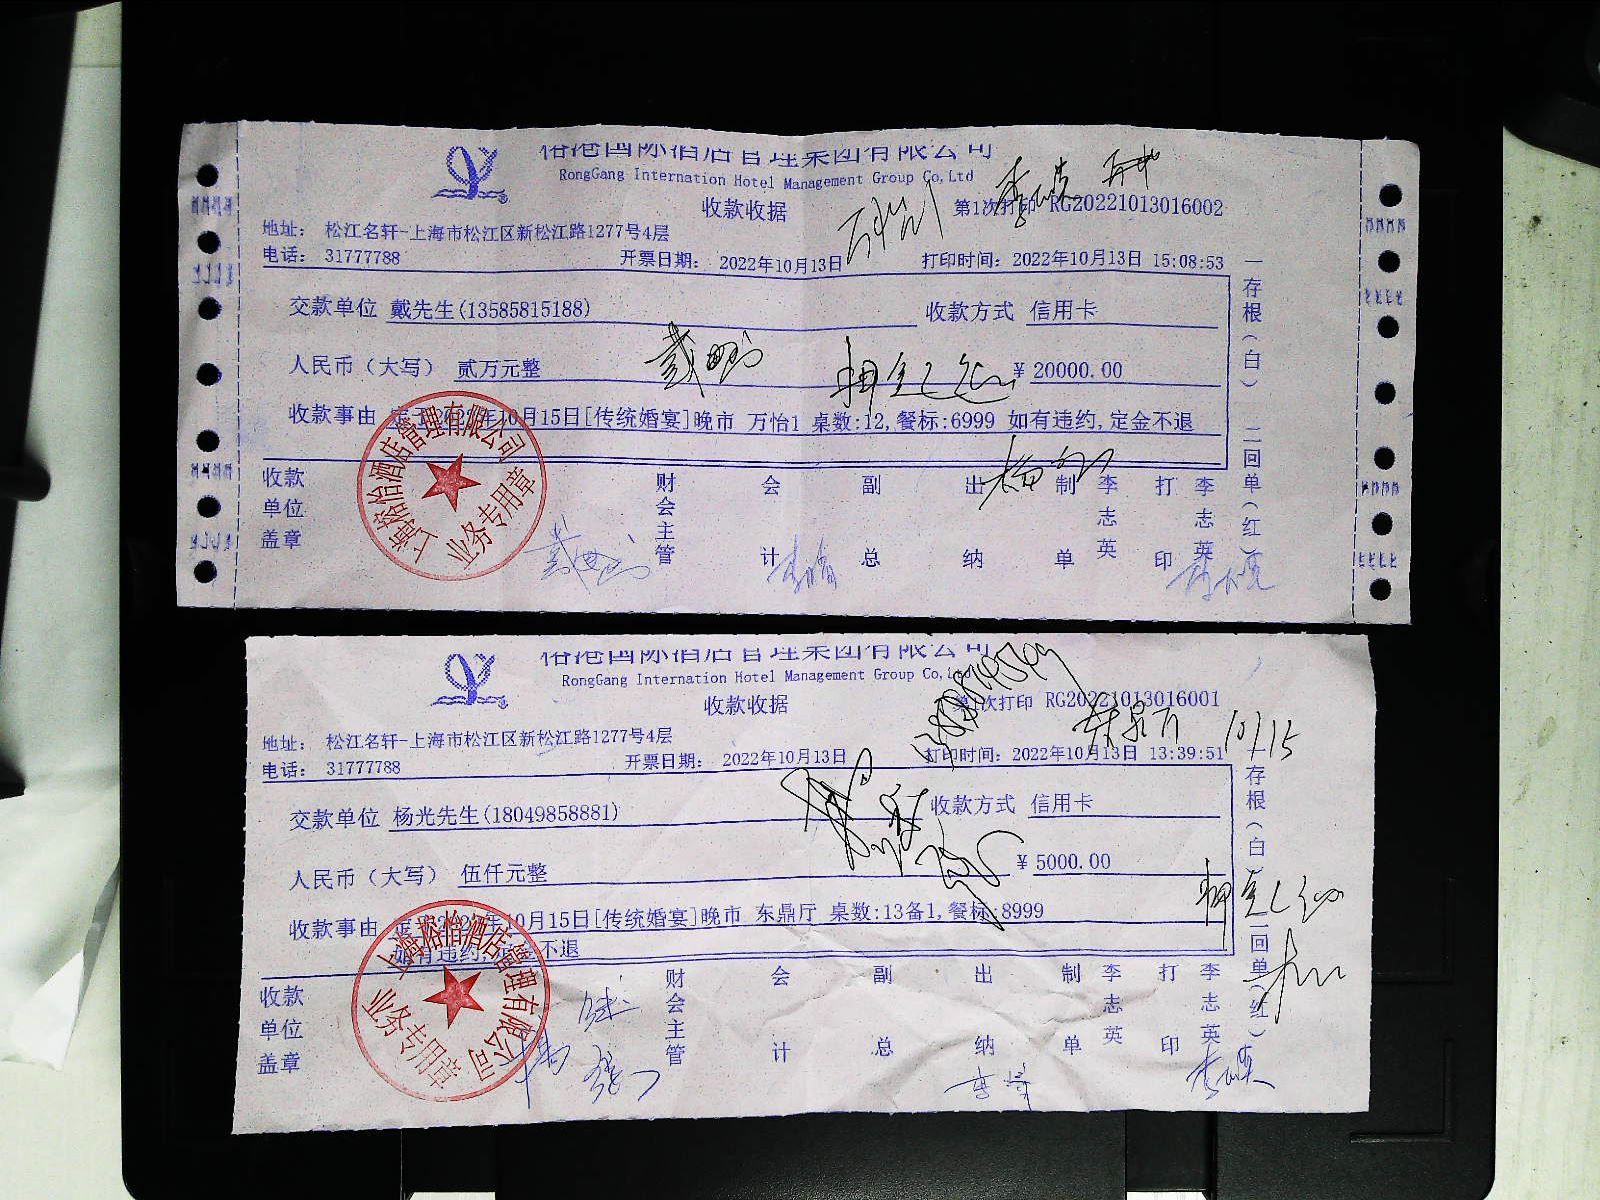 榕港国际酒店管理集团有限公司
RongGang Internation Hotel Management Group Co,Ltd
收款收据
第1次打印 RG20221013016002
地址： 松江名轩-上海市松江区新松江路1277号4层
电话： 31777788 开票日期： 2022年10月13日 打印时间：2022年10月13日 15:08:53
交款单位 戴先生(13585815188) 收款方式 信用卡
人民币（大写） 贰万元整 ¥ 20000.00
收款事由 定于2022年10月15日[传统婚宴]晚市 万怡1 桌数:12,餐标:6999 如有违约,定金不退
收款单位盖章 财会主管 会计 副总 出纳 制单 李志英 打印 李志英
一存根（白） 二回单（红）
上海榕怡酒店管理有限公司
业务专用章
榕港国际酒店管理集团有限公司
RongGang Internation Hotel Management Group Co,Ltd
收款收据
第1次打印 RG20221013016001
10/15
地址： 松江名轩-上海市松江区新松江路1277号4层
电话： 31777788 开票日期： 2022年10月13日 打印时间：2022年10月13日 13:39:51
交款单位 杨光先生(18049858881) 收款方式 信用卡
人民币（大写） 伍仟元整 ¥ 5000.00
收款事由 定于2022年10月15日[传统婚宴]晚市 东鼎厅 桌数:13备1,餐标:8999
如有违约,定金不退
收款单位盖章 财会主管 会计 副总 出纳 制单 李志英 打印 李志英
一存根（白） 二回单（红）
上海榕怡酒店管理有限公司
业务专用章